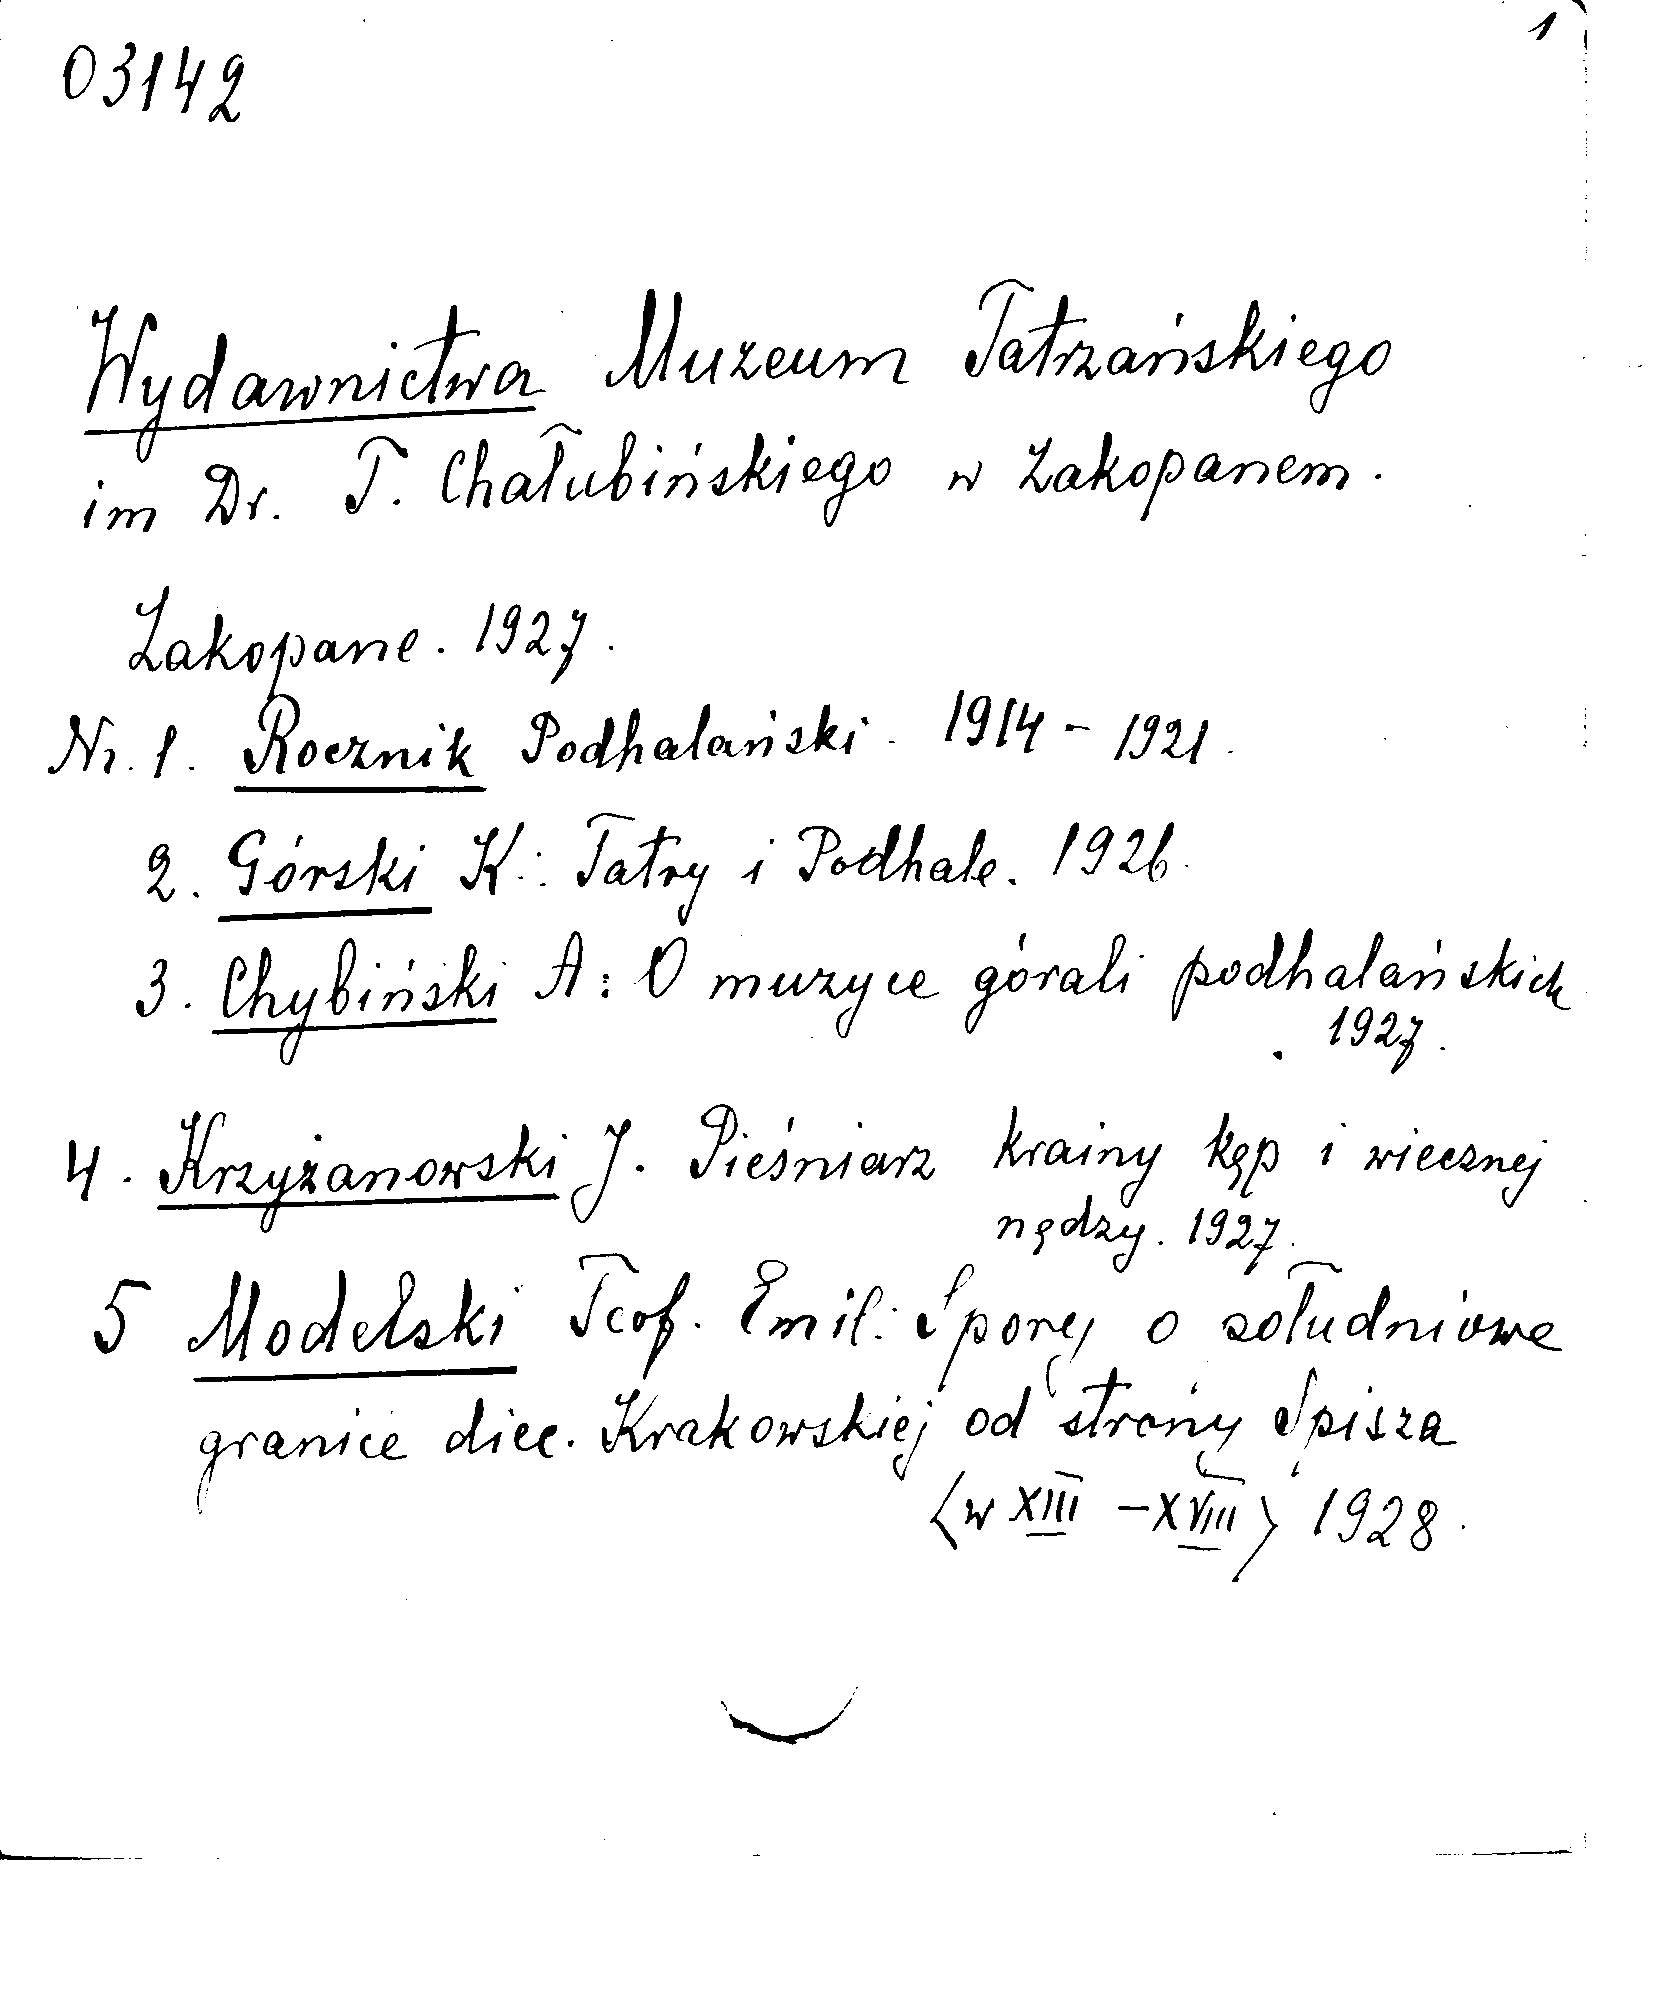 1
03142
Wydawnictwa Muzeum Tatrzańskiego
im Dr. T. Chałubińskiego w Zakopanem.
Zakopane. 1927.
Nr. 1. Rocznik Podhalański. 1914 - 1921.
2. Górski K.: Tatry i Podhale. 1926.
3. Chybiński A: O muzyce górali podhalańskich
1927.
4. Krzyżanowski J. Pieśniarz krainy kęp i wiecznej
nędzy. 1927.
5 Modelski Teof. Emil: Spory o sołudniowe
granice diec. Krakowskiej od strony Spisza
(w XIII - XVIII) 1928.